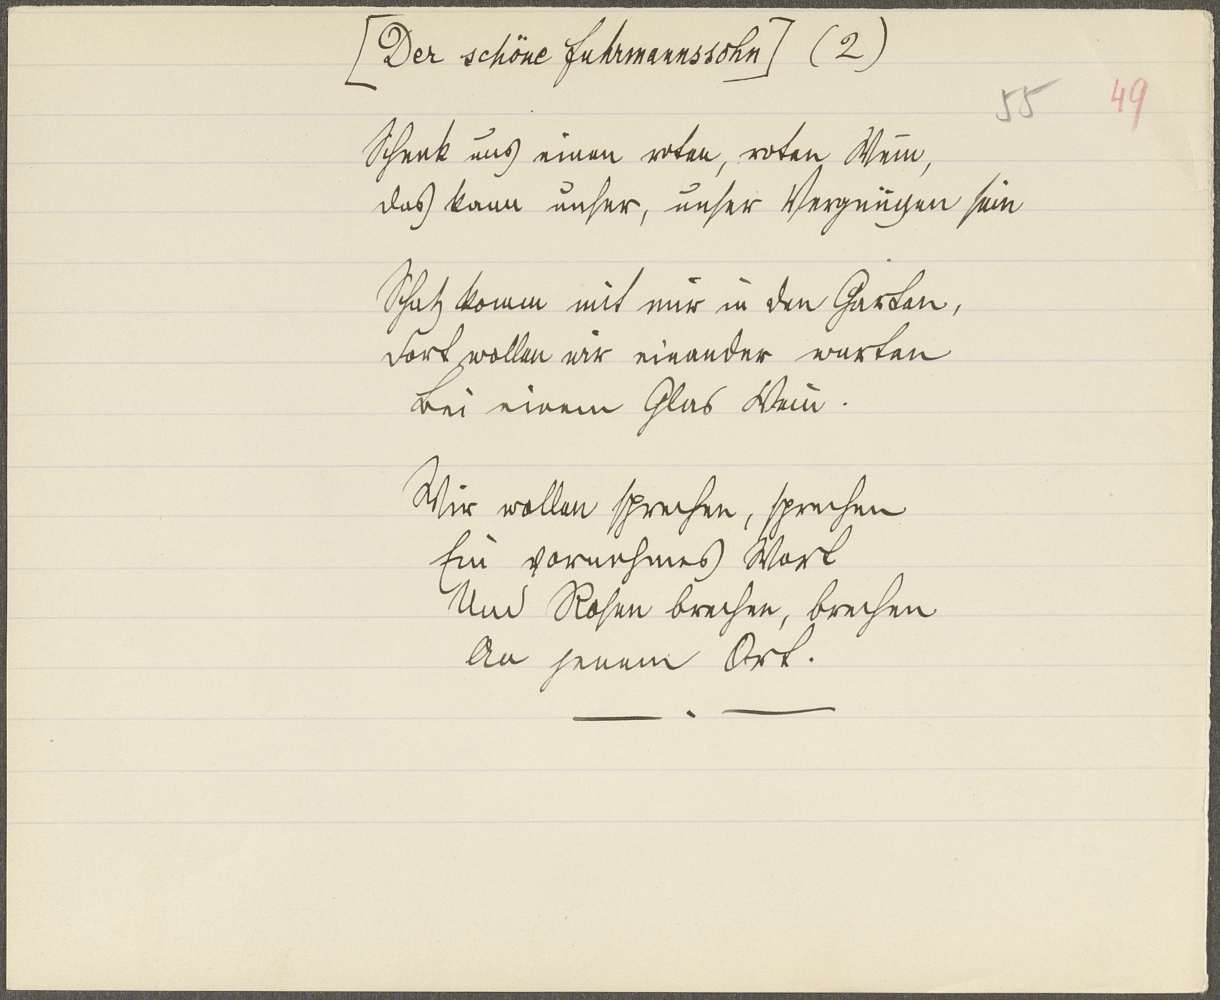 [Der schöne Fuhrmannssohn] (2)
55 49
Schenk uns einen roten, roten Wein,
das kann unser, unser Vergnügen sein
Schatz komm mit mir in den Garten,
Dort wollen wir einander warten
Bei einem Glas Wein.
Wir wollen sprechen, sprechen
Ein vornehmes Wort
Und Rosen brechen, brechen
An jenem Ort.